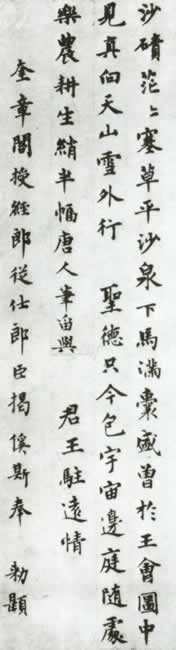 沙磧茫〻塞草平沙泉下馬滿囊盛曽於王會圖中
見真向天山雪外行 聖德只今包宇宙邊庭隨處
樂農耕生綃半幅唐人筆畄與 君王駐遠情
奎章閣授經郎從仕郎臣揭傒斯奉 勑題